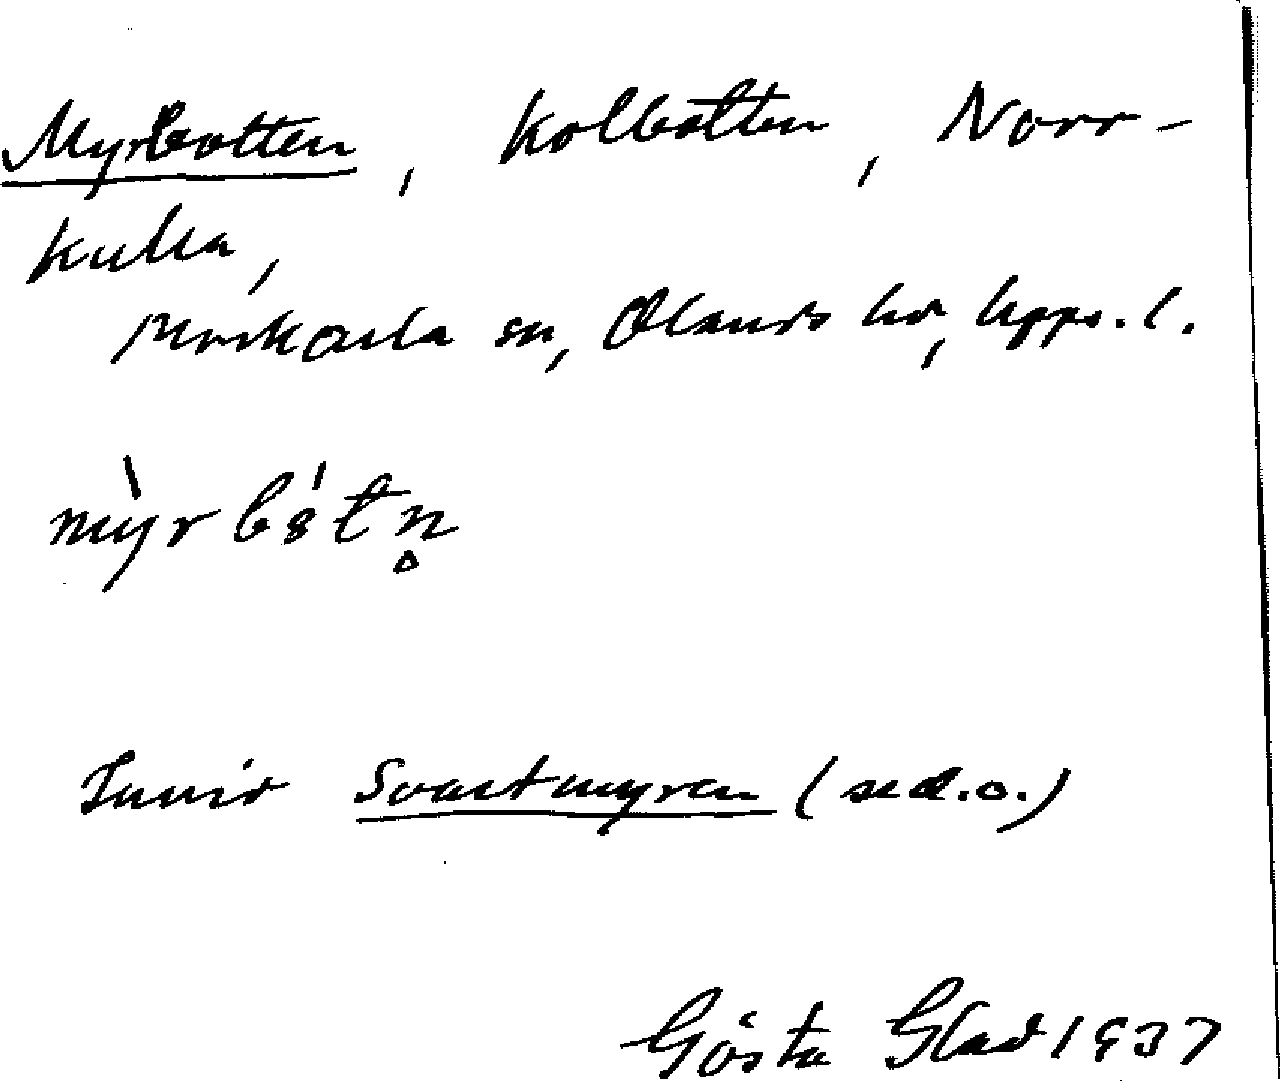 Myrbotten, Kolbotten, Norr-
kulla,
Morkarla sn, Olands hd, Upps. l.
my̍rbꞩtn̥
Invid Svartmyren (se d.o.)
Gösta Glad 1937